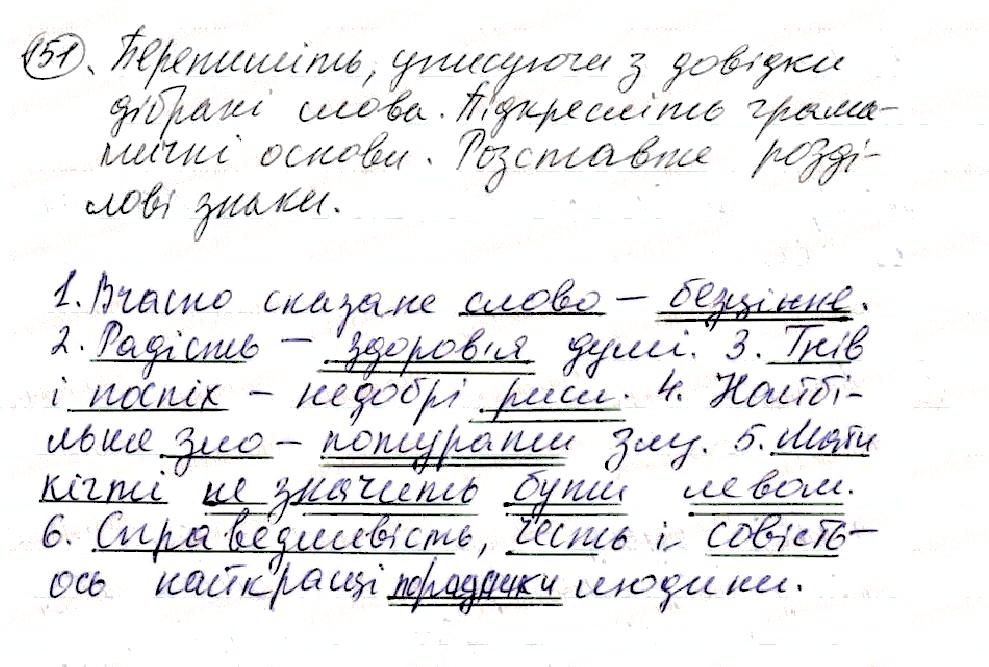 151. Перепишіть, уписуючи з довідки
дібрані слова. Підкресліть грама-
тичні основи. Розставте розді-
лові знаки.
1. Вчасно сказане слово – безцінне.
2. Радість – здоров'я душі. 3. Гнів
і поспіх – недобрі риси. 4. Найбі-
льше зло – потурати злу. 5. Мати
кігті не значить бути левом.
6. Справедливість, честь і совість –
ось найкращі порадники людини.